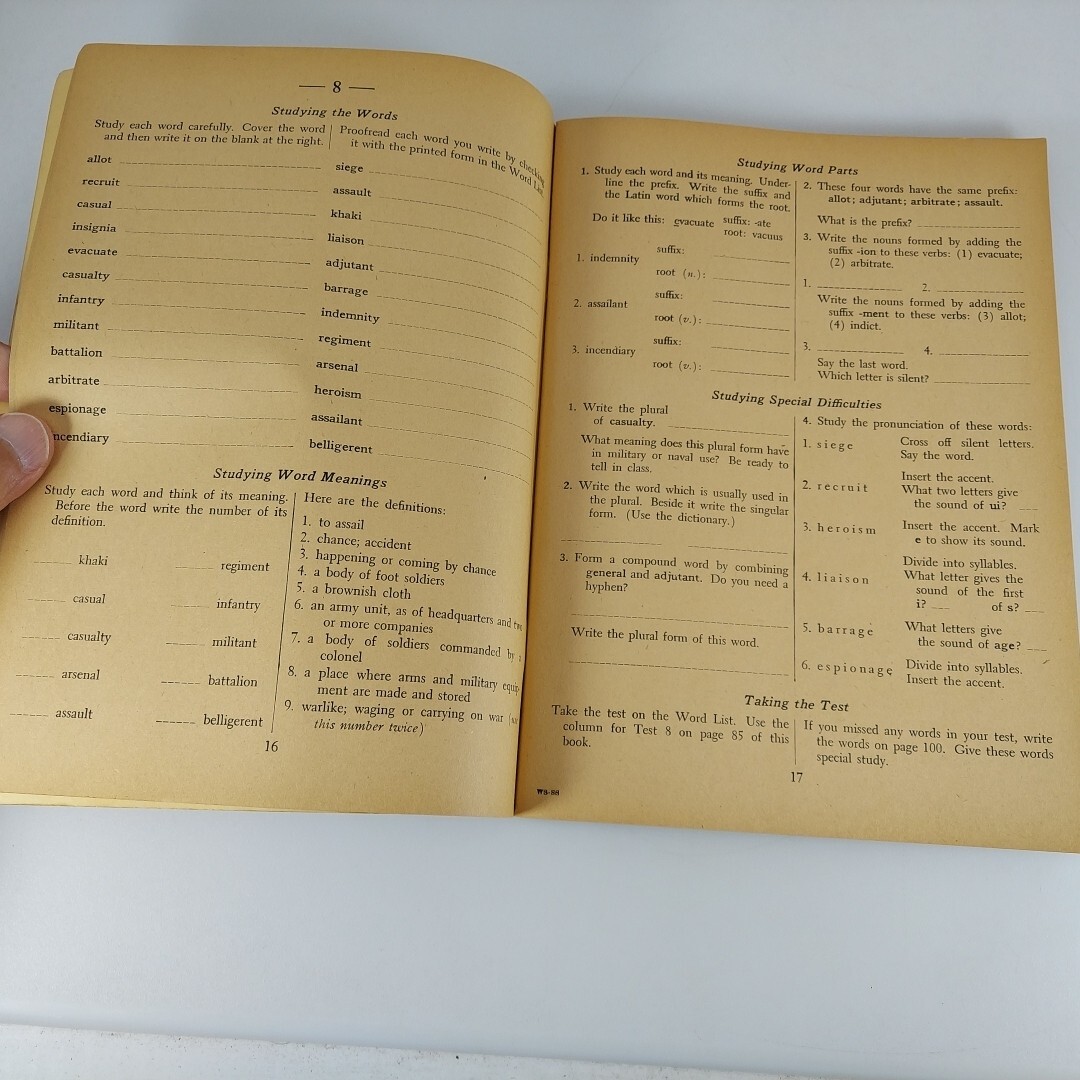 — 8 —
Studying the Words
Study each word carefully. Cover the word
and then write it on the blank at the right.
Proofread each word you write by checking
it with the printed form in the Word List.
allot
recruit
casual
insignia
evacuate
casualty
infantry
militant
battalion
arbitrate
espionage
incendiary
siege
assault
khaki
liaison
adjutant
barrage
indemnity
regiment
arsenal
heroism
assailant
belligerent
Studying Word Meanings
Study each word and think of its meaning.
Before the word write the number of its
definition.
khaki regiment
casual infantry
casualty militant
arsenal battalion
assault belligerent
Here are the definitions:
1. to assail
2. chance; accident
3. happening or coming by chance
4. a body of foot soldiers
5. a brownish cloth
6. an army unit, as of headquarters and two
or more companies
7. a body of soldiers commanded by a
colonel
8. a place where arms and military equip-
ment are made and stored
9. warlike; waging or carrying on war
this number twice)
16
Studying Word Parts
1. Study each word and its meaning. Under-
line the prefix. Write the suffix and
the Latin word which forms the root.
Do it like this: evacuate suffix: -ate
root: vacuus
suffix:
1. indemnity
root (n.):
suffix:
2. assailant
root (v.):
suffix:
3. incendiary
root (v.):
2. These four words have the same prefix:
allot; adjutant; arbitrate; assault.
What is the prefix?
3. Write the nouns formed by adding the
suffix -ion to these verbs: (1) evacuate;
(2) arbitrate.
1. 2.
Write the nouns formed by adding the
suffix -ment to these verbs: (3) allot;
(4) indict.
3. 4.
Say the last word.
Which letter is silent?
Studying Special Difficulties
1. Write the plural
of casualty.
What meaning does this plural form have
in military or naval use? Be ready to
tell in class.
2. Write the word which is usually used in
the plural. Beside it write the singular
form. (Use the dictionary.)
3. Form a compound word by combining
general and adjutant. Do you need a
hyphen?
Write the plural form of this word.
4. Study the pronunciation of these words:
1. siege Cross off silent letters.
Say the word.
Insert the accent.
2. recruit What two letters give
the sound of ui?
3. heroism Insert the accent. Mark
e to show its sound.
Divide into syllables.
4. liaison What letter gives the
sound of the first
i? of s?
5. barrage What letters give
the sound of age?
6. espionage Divide into syllables.
Insert the accent.
Taking the Test
Take the test on the Word List. Use the
column for Test 8 on page 85 of this
book.
If you missed any words in your test, write
the words on page 100. Give these words
special study.
17
W8-88